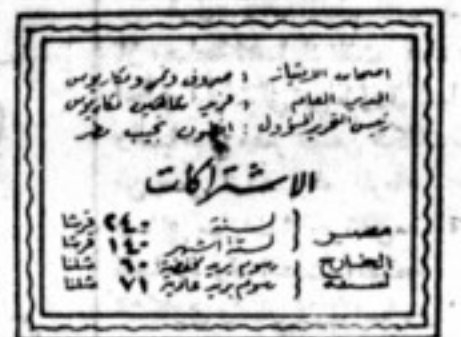 اصحاب الامتياز : صروف ونمر ومكاريوس
المدير العام : فريد مكاريوس
رئيس التحرير المسؤول : انطون نجيب مطر
الاشتراكات
مصر لسنة ٢٤٠ قرشا
لستة اشهر ١٤٠ قرشا
الخارج رسوم بريد مخفضة ٦٠ شلنا
لسنة رسوم بريد عادية ٧١ شلنا